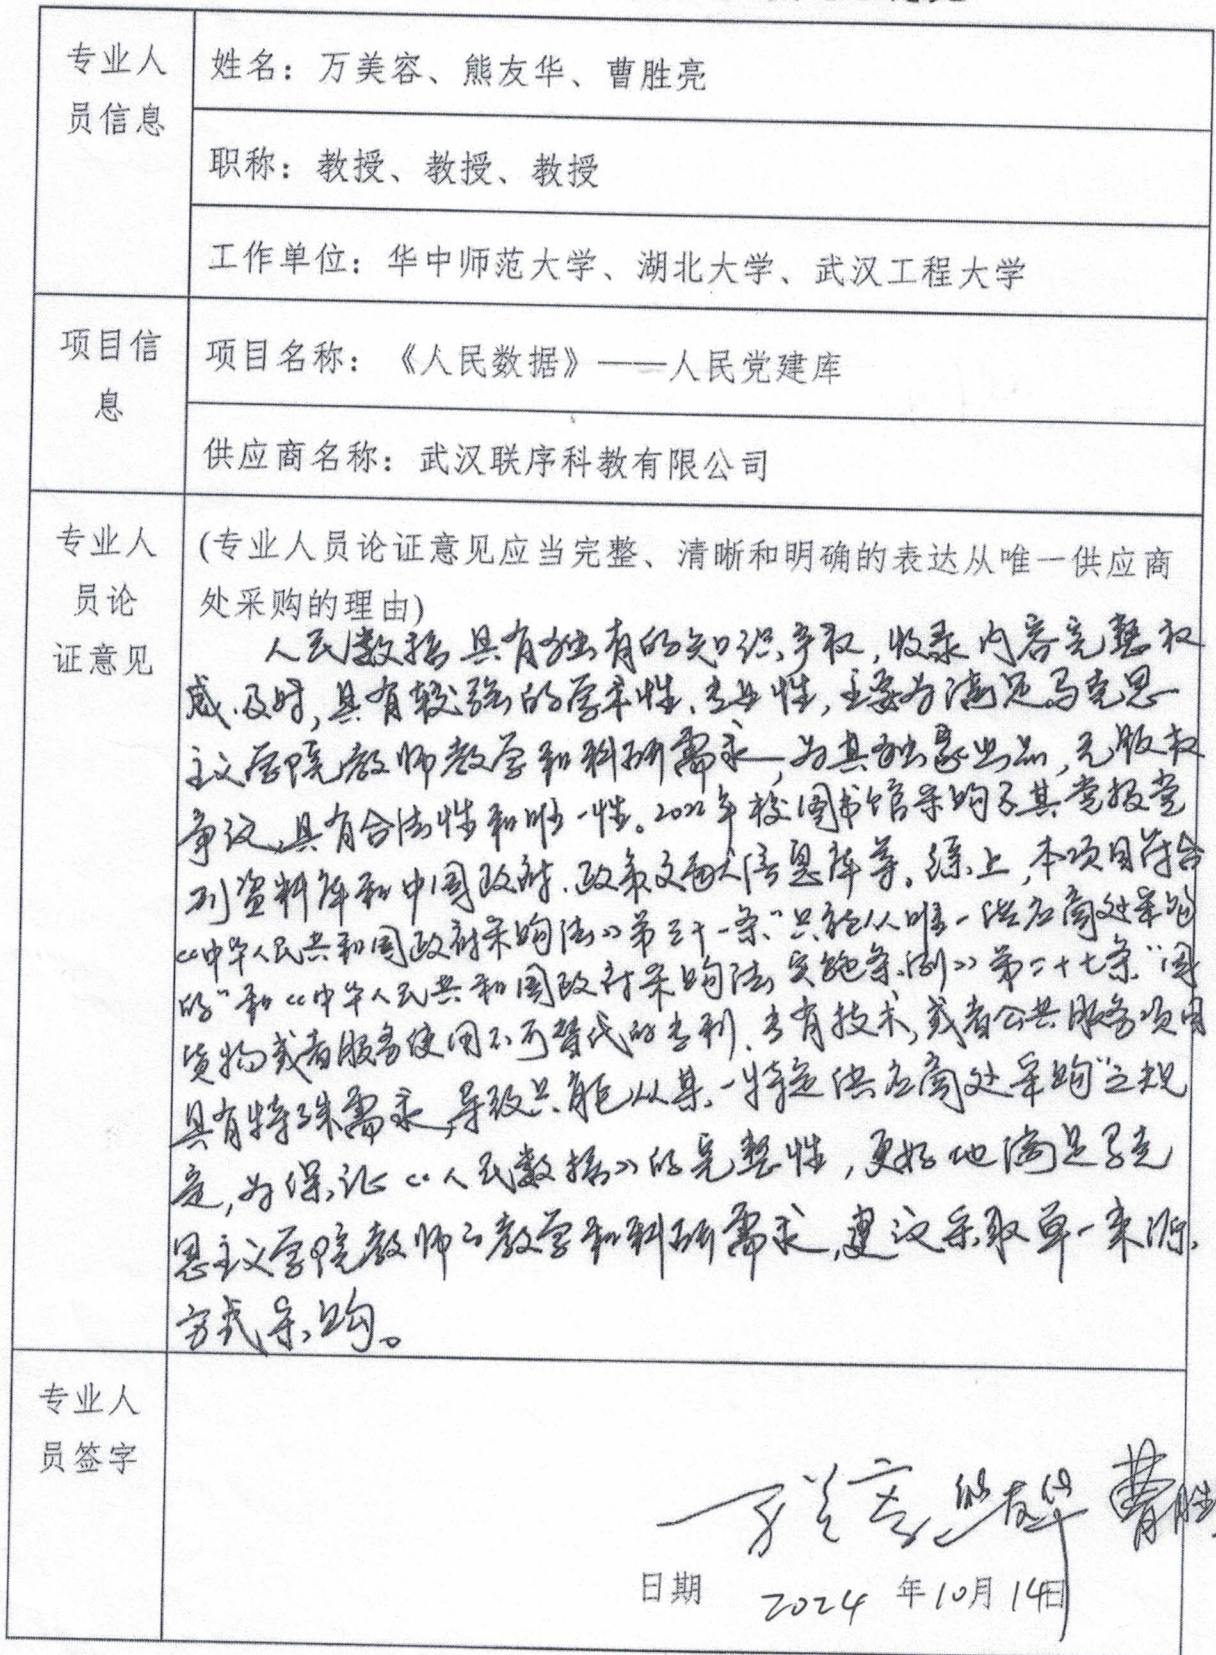 专业人员信息
姓名：万美容、熊友华、曹胜亮
职称：教授、教授、教授
工作单位：华中师范大学、湖北大学、武汉工程大学
项目信息
项目名称：《人民数据》——人民党建库
供应商名称：武汉联序科教有限公司
专业人员论证意见
(专业人员论证意见应当完整、清晰和明确的表达从唯一供应商
处采购的理由)
人民数据具有独有的知识产权,收录内容完整权
威、及时,具有较强的学术性、专业性,主要为满足马克思
主义学院教师教学和科研需求,为其独家出品,无版权
争议,具有合法性和唯一性。2022年校图书馆采购了其党报党
刊资料库和中国政府、政策文献信息库等。综上,本项目符合
《中华人民共和国政府采购法》第三十一条"只能从唯一供应商处采购
的"和《中华人民共和国政府采购法实施条例》第二十七条"因
货物或者服务使用不可替代的专利、专有技术,或者公共服务项目
具有特殊需求,导致只能从某一特定供应商处采购"之规
定,为保证《人民数据》的完整性,更好地满足马克
思主义学院教师的教学和科研需求,建议采取单一来源
方式采购。
专业人员签字
万美容 熊友华 曹胜
日期 2024 年10月14日